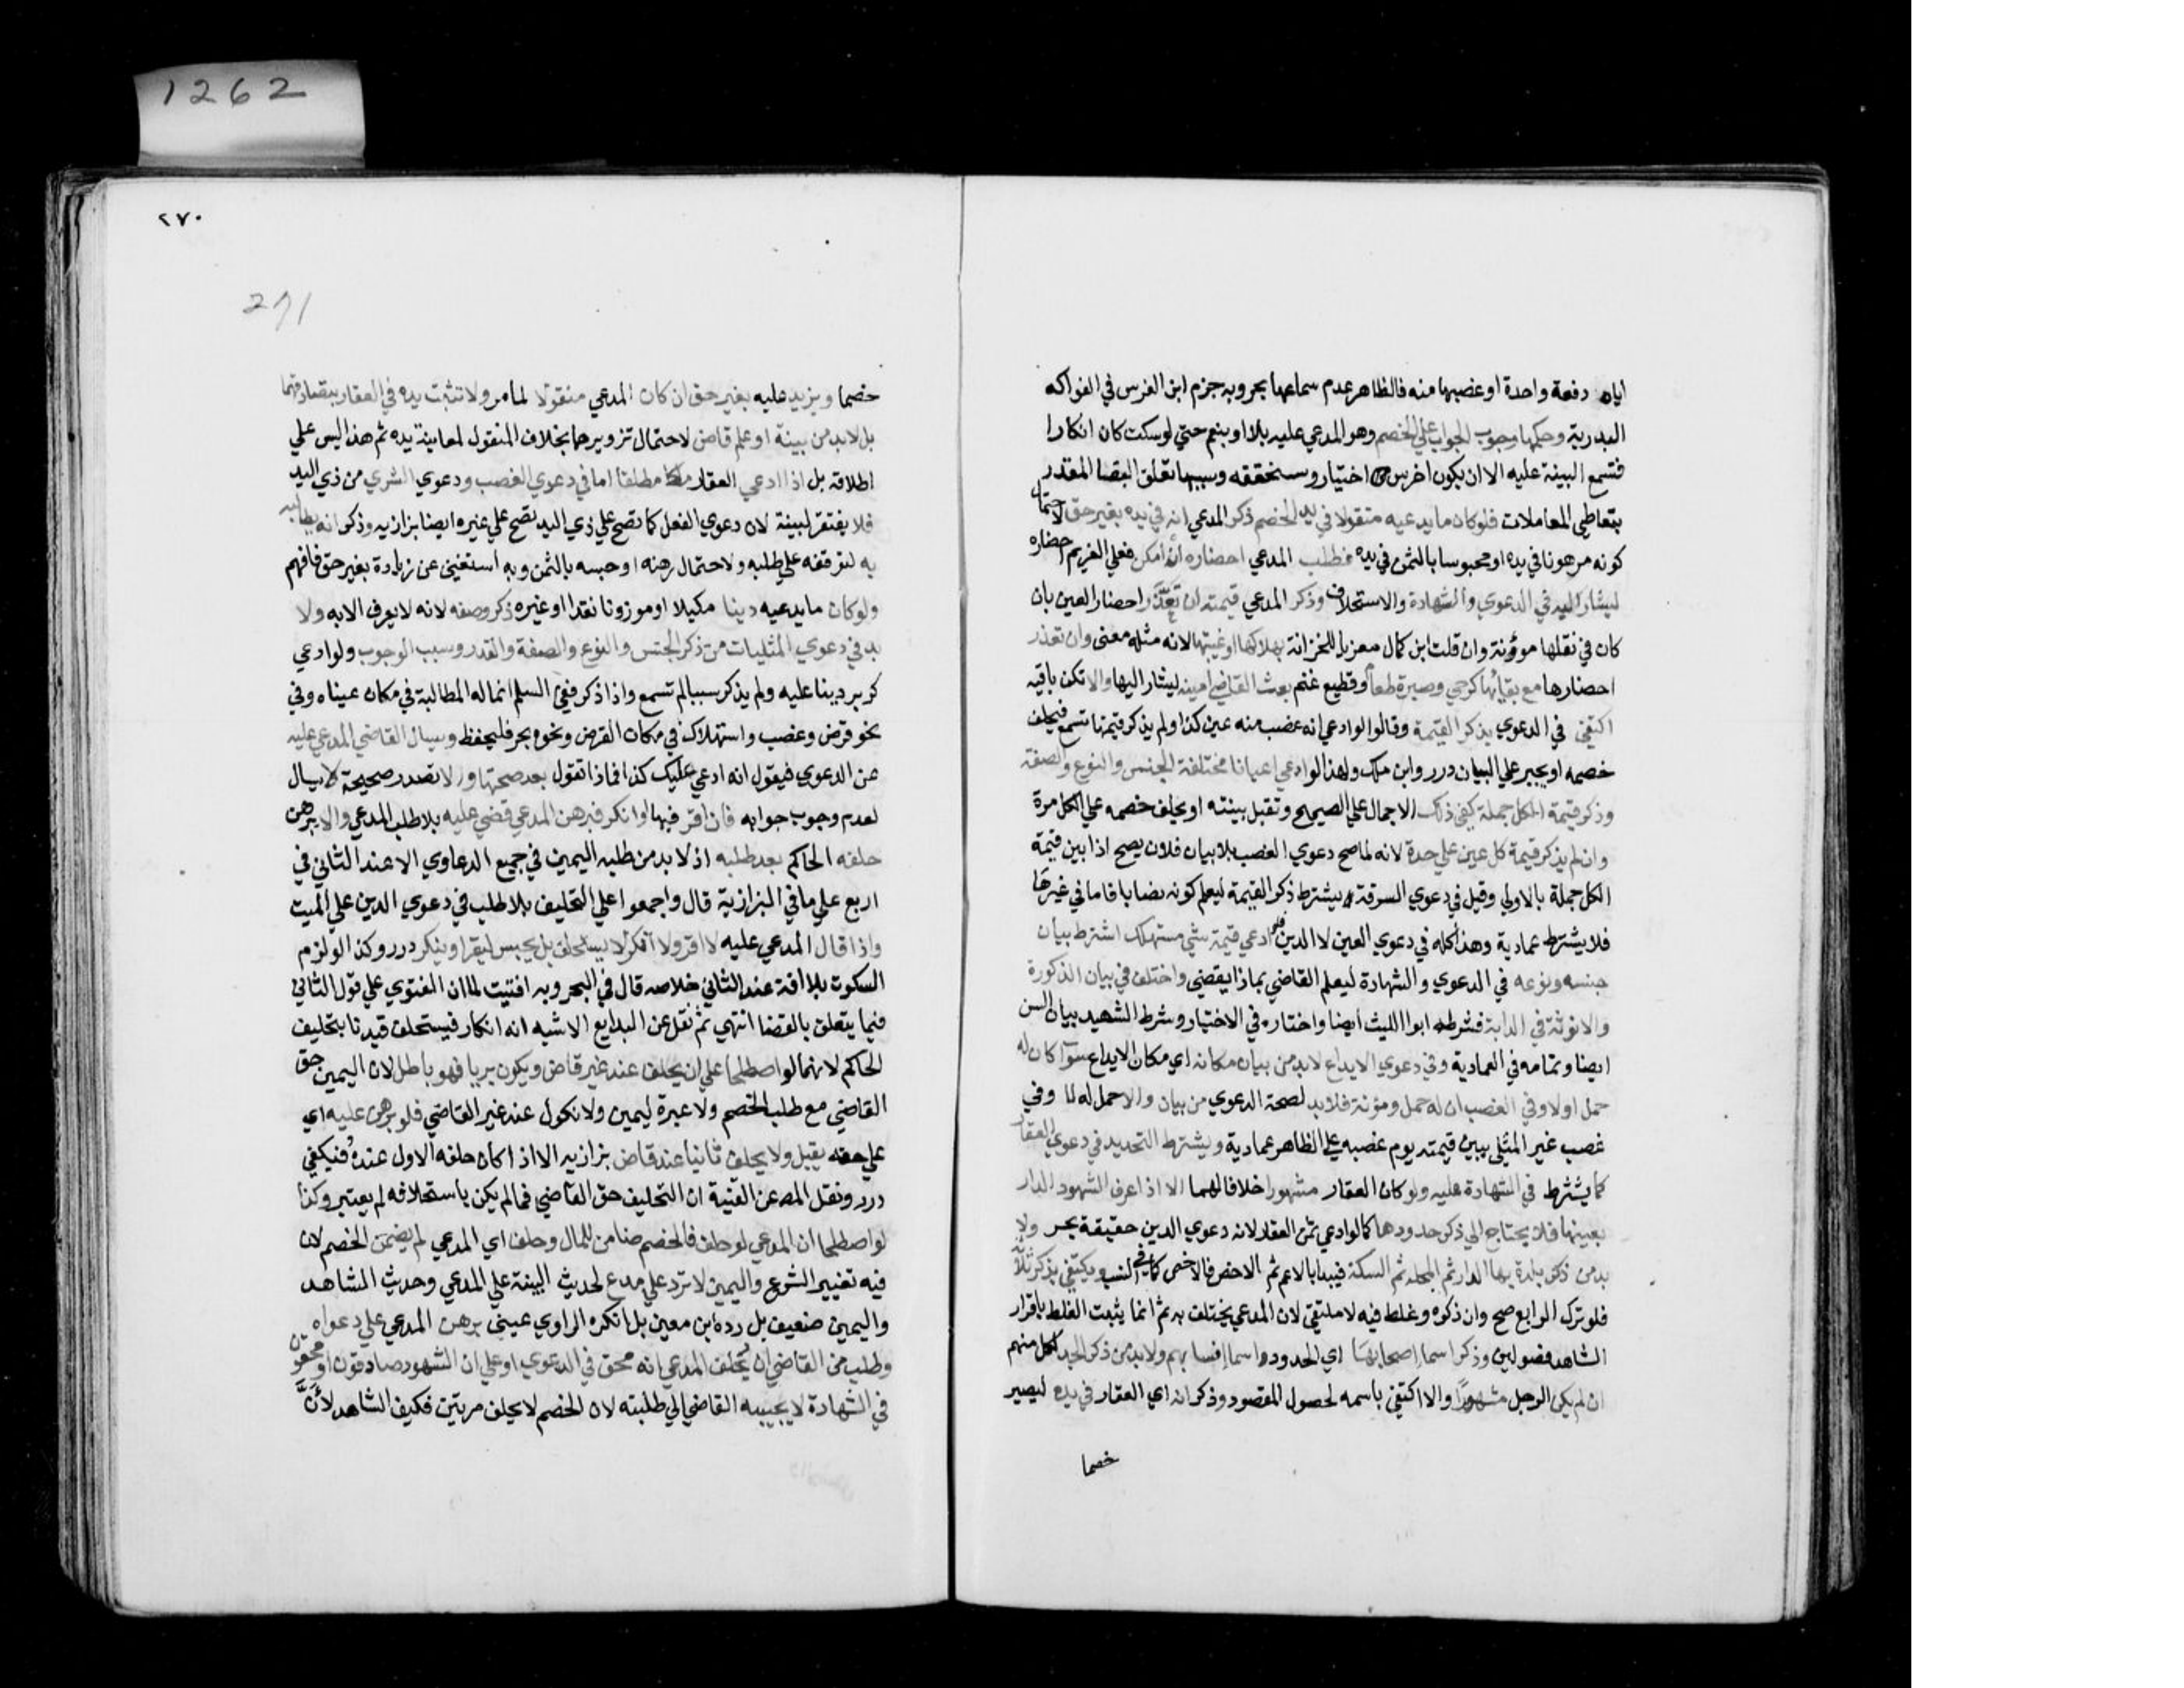 1262
اياه دفعة واحدة او غصبها منه فالظاهر عدم سماعها بحر وبه جزم ابن الغرس في الفواكه
البدرية وحكمها وجوب الجواب علي الخصم وهو المدعي عليه بلا او بنعم حتي لو سكت كان انكارا
فتسمع البينة عليه الا ان يكون اخرس اختيار وسنحققه وسببها تعلق البقا المقدر
بتعاطي المعاملات فلو كان ما يدعيه منقولا في يد الخصم ذكر المدعي انه في يده بغير حق لاحتمال
كونه مرهونا في يده او محبوسا بالثمن في يده وطلب المدعي احضاره ان امكن فعلي الغريم احضاره
ليشار اليه في الدعوي والشهادة والاستحلاف وذكر المدعي قيمته ان تعذر احضار العين بان
كان في نقلها مؤنة وان قلت ابن كمال معزيا للخزانة بهلاكها او غيبتها لانه مثله معني وان تعذر
احضارها مع بقائها كرحي وصبرة طعام وقطيع غنم بعث القاضي امينه ليشار اليها والا تكن باقيه
اكتفي في الدعوي بذكر القيمة وقالوا لو ادعي انه غصب منه عين كذا ولم يذكر قيمتها تسمع فيحلف
خصمه او يجبر علي البيان درر وابن ملك ولهذا لو ادعي اعيانا مختلفة الجنس والنوع والصفة
وذكر قيمة الكل جملة كفي ذلك الاجمال علي الصحيح وتقبل بينته او يحلف خصمه علي الكل مرة
وان لم يذكر قيمة كل عين علي حدة لانه لما صح دعوي الغصب بلا بيان فلان يصح اذا بين قيمة
الكل جملة بالاولي وقيل في دعوي السرقة يشترط ذكر القيمة ليعلم كونه نصابا فاما في غيرها
فلا يشترط عمادية وهذا كله في دعوي العين لا الدين فلو ادعي قيمة شي مستهلك اشترط بيان
جنسه ونوعه في الدعوي والشهادة ليعلم القاضي بماذا يقضي واختلف في بيان الذكورة
والانوثة في الدابة فشرطه ابوا الليث ايضا واختاره في الاختيار وشرط الشهيد بيان السن
ايضا وتمامه في العمادية وفي دعوي الايداع لا بد من بيان مكانه اي مكان الايداع سوآ كان له
حمل اولا وفي الغصب ان له حمل ومؤنة فلا بد لصحة الدعوي من بيان والا حمل له لا وفي
غصب غير المثلي يبين قيمته يوم غصبه علي الظاهر عمادية ويشترط التحديد في دعوي العقار
كما يشترط في الشهادة عليه ولو كان العقار مشهورا خلافا لهما الا اذا عرف الشهود الدار
بعينها فلا يحتاج الي ذكر حدودها كما لو ادعي ثمن العقار لانه دعوي الدين حقيقة بحر ولا
بد من ذكر بلدة بها الدار ثم المحله ثم السكة فيبدا بالاعم ثم الاخص فالاخص كما في النسب ويكتفي بذكر ثلاثة
فلو ترك الرابع صح وان ذكره وغلط فيه لا ملتقي لان المدعي يختلف به ثم انما يثبت الغلط باقرار
الشاهد فصولين وذكر اسما اصحابها اي الحدود واسما انسابهم ولا بد من ذكر الجد لكل منهم
ان لم يكن الرجل مشهورا والا اكتفي باسمه لحصول المقصود وذكر انه اي العقار في يده ليصير
خصما
٢٧٠
271
خصما ويزيد عليه بغير حق ان كان المدعي منقولا لما مر ولا تثبت يده في العقار بتصادقهما
بل لا بد من بينة او علم قاض لاحتمال تزويرهما بخلاف المنقول لمعاينة يده ثم هذا ليس علي
اطلاقه بل اذا ادعي العقار ملكا مطلقا اما في دعوي الغصب ودعوي الشري من ذي اليد
فلا يفتقر لبينة لان دعوي الفعل كما تصح علي ذي اليد تصح علي غيره ايضا بزازيه وذكر انه يطالبه
به لتوقفه علي طلبه ولاحتمال رهنه او حبسه بالثمن وبه استغني عن زيادة بغير حق فافهم
ولو كان ما يدعيه دينا مكيلا او موزونا نقدا او غيره ذكر وصفه لانه لا يعرف الا به ولا
بد في دعوي المثليات من ذكر الجنس والنوع والصفة والقدر وسبب الوجوب ولو ادعي
كر بر دينا عليه ولم يذكر سببا لم تسمع واذا ذكر ففي السلم انما له المطالبة في مكان عيناه وفي
نحو قرض وغصب واستهلاك في مكان القرض ونحوه بحر فليحفظ ويسال القاضي المدعي عليه
عن الدعوي فيقول انه ادعي عليك كذا فماذا تقول بعد صحتها ولا تصدر صحيحة لا يسال
لعدم وجوب جوابه فان اقر فبها او انكر فبرهن المدعي قضي عليه بلا طلب المدعي والا يبرهن
حلفه الحاكم بعد طلبه اذ لا بد من طلبه اليمين في جميع الدعاوي الا عند الثاني في
اربع علي ما في البزازية قال واجمعوا علي التحليف بلا طلب في دعوي الدين علي الميت
واذا قال المدعي عليه لا اقر ولا انكر لا يستحلف بل يحبس ليقر او ينكر درر وكذا لو لزم
السكوت بلا افة عند الثاني خلاصه قال في البحر وبه افتيت لما ان الفتوي علي قول الثاني
فيما يتعلق بالقضا انتهي ثم نقل عن البدايع الاشبه انه انكار فيستحلف قيدنا بتحليف
الحاكم لانهما لو اصطلحا علي ان يحلف عند غير قاض ويكون بريا فهو باطل لان اليمين حق
القاضي مع طلب الخصم ولا عبرة ليمين ولا نكول عند غير القاضي فلو برهن عليه اي
علي حقه يقبل ولا يحلف ثانيا عند قاض بزازيه الا اذا كان حلفه الاول عنده فيكفي
درر ونقل المص عن القنية ان التحليف حق القاضي فما لم يكن باستحلافه لم يعتبر وكذا
لو اصطلحا ان المدعي لو حلف فالخصم ضامن للمال وحلف اي المدعي لم يضمن الخصم لان
فيه تغيير الشرع واليمين لا ترد علي مدع لحديث البينة علي المدعي وحديث الشاهد
واليمين ضعيف بل رده ابن معين بل انكره الراوي عيني برهن المدعي علي دعواه
وطلب من القاضي ان يحلف المدعي انه محق في الدعوي او علي ان الشهود صادقون او محقون
في الشهادة لا يجيبه القاضي الي طلبته لان الخصم لا يحلف مرتين فكيف الشاهد لان